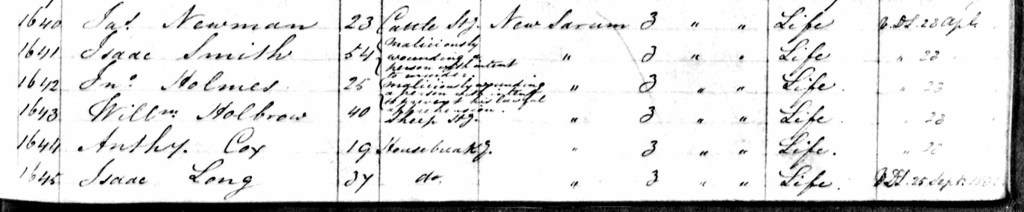 1640 Jas. Newman 23 Cattle Stg. New Sarum 3 " " Life 23 Apl
1641 Isaac Smith 54 Maliciously wounding a person with intent to murder. " 3 " " Life " 23
1642 Jno. Holmes 25 Maliciously wounding a person with intent to prevent his lawful apprehension. " 3 " " Life. " 23
1643 Willm. Holbrow 40 Sheep Stg. " 3 " " Life. " 23
1644 Anthy. Cox 19 Housebreakg. " 3 " " Life. " 23
1645 Isaac Long 37 do. " 3 " " Life. 25 Sept.